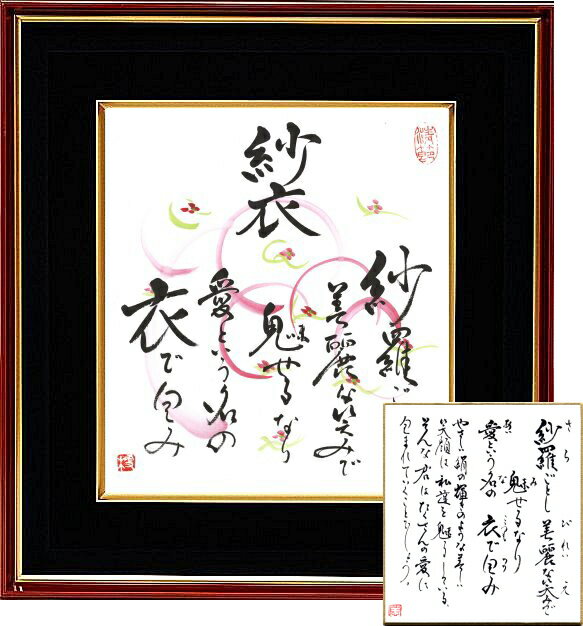 紗衣
紗羅ごとし
美麗な笑みで
魅せるなり
愛という名の
衣で包み
さら びれい え
紗羅ごとし 美麗な笑みで
み
魅せるなり
愛という名の 衣で包み
やさしい絹の輝きのような美しい
笑顔は私達を魅了している。
そんな君はたくさんの愛に
包まれていくことでしょう。